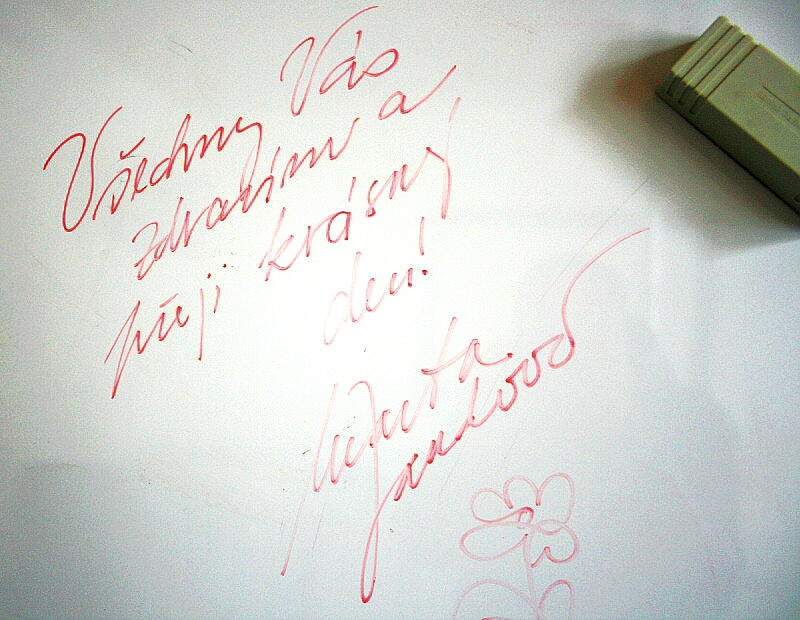 Všechny Vás
zdravím a
přeji krásný
den!
Jandová